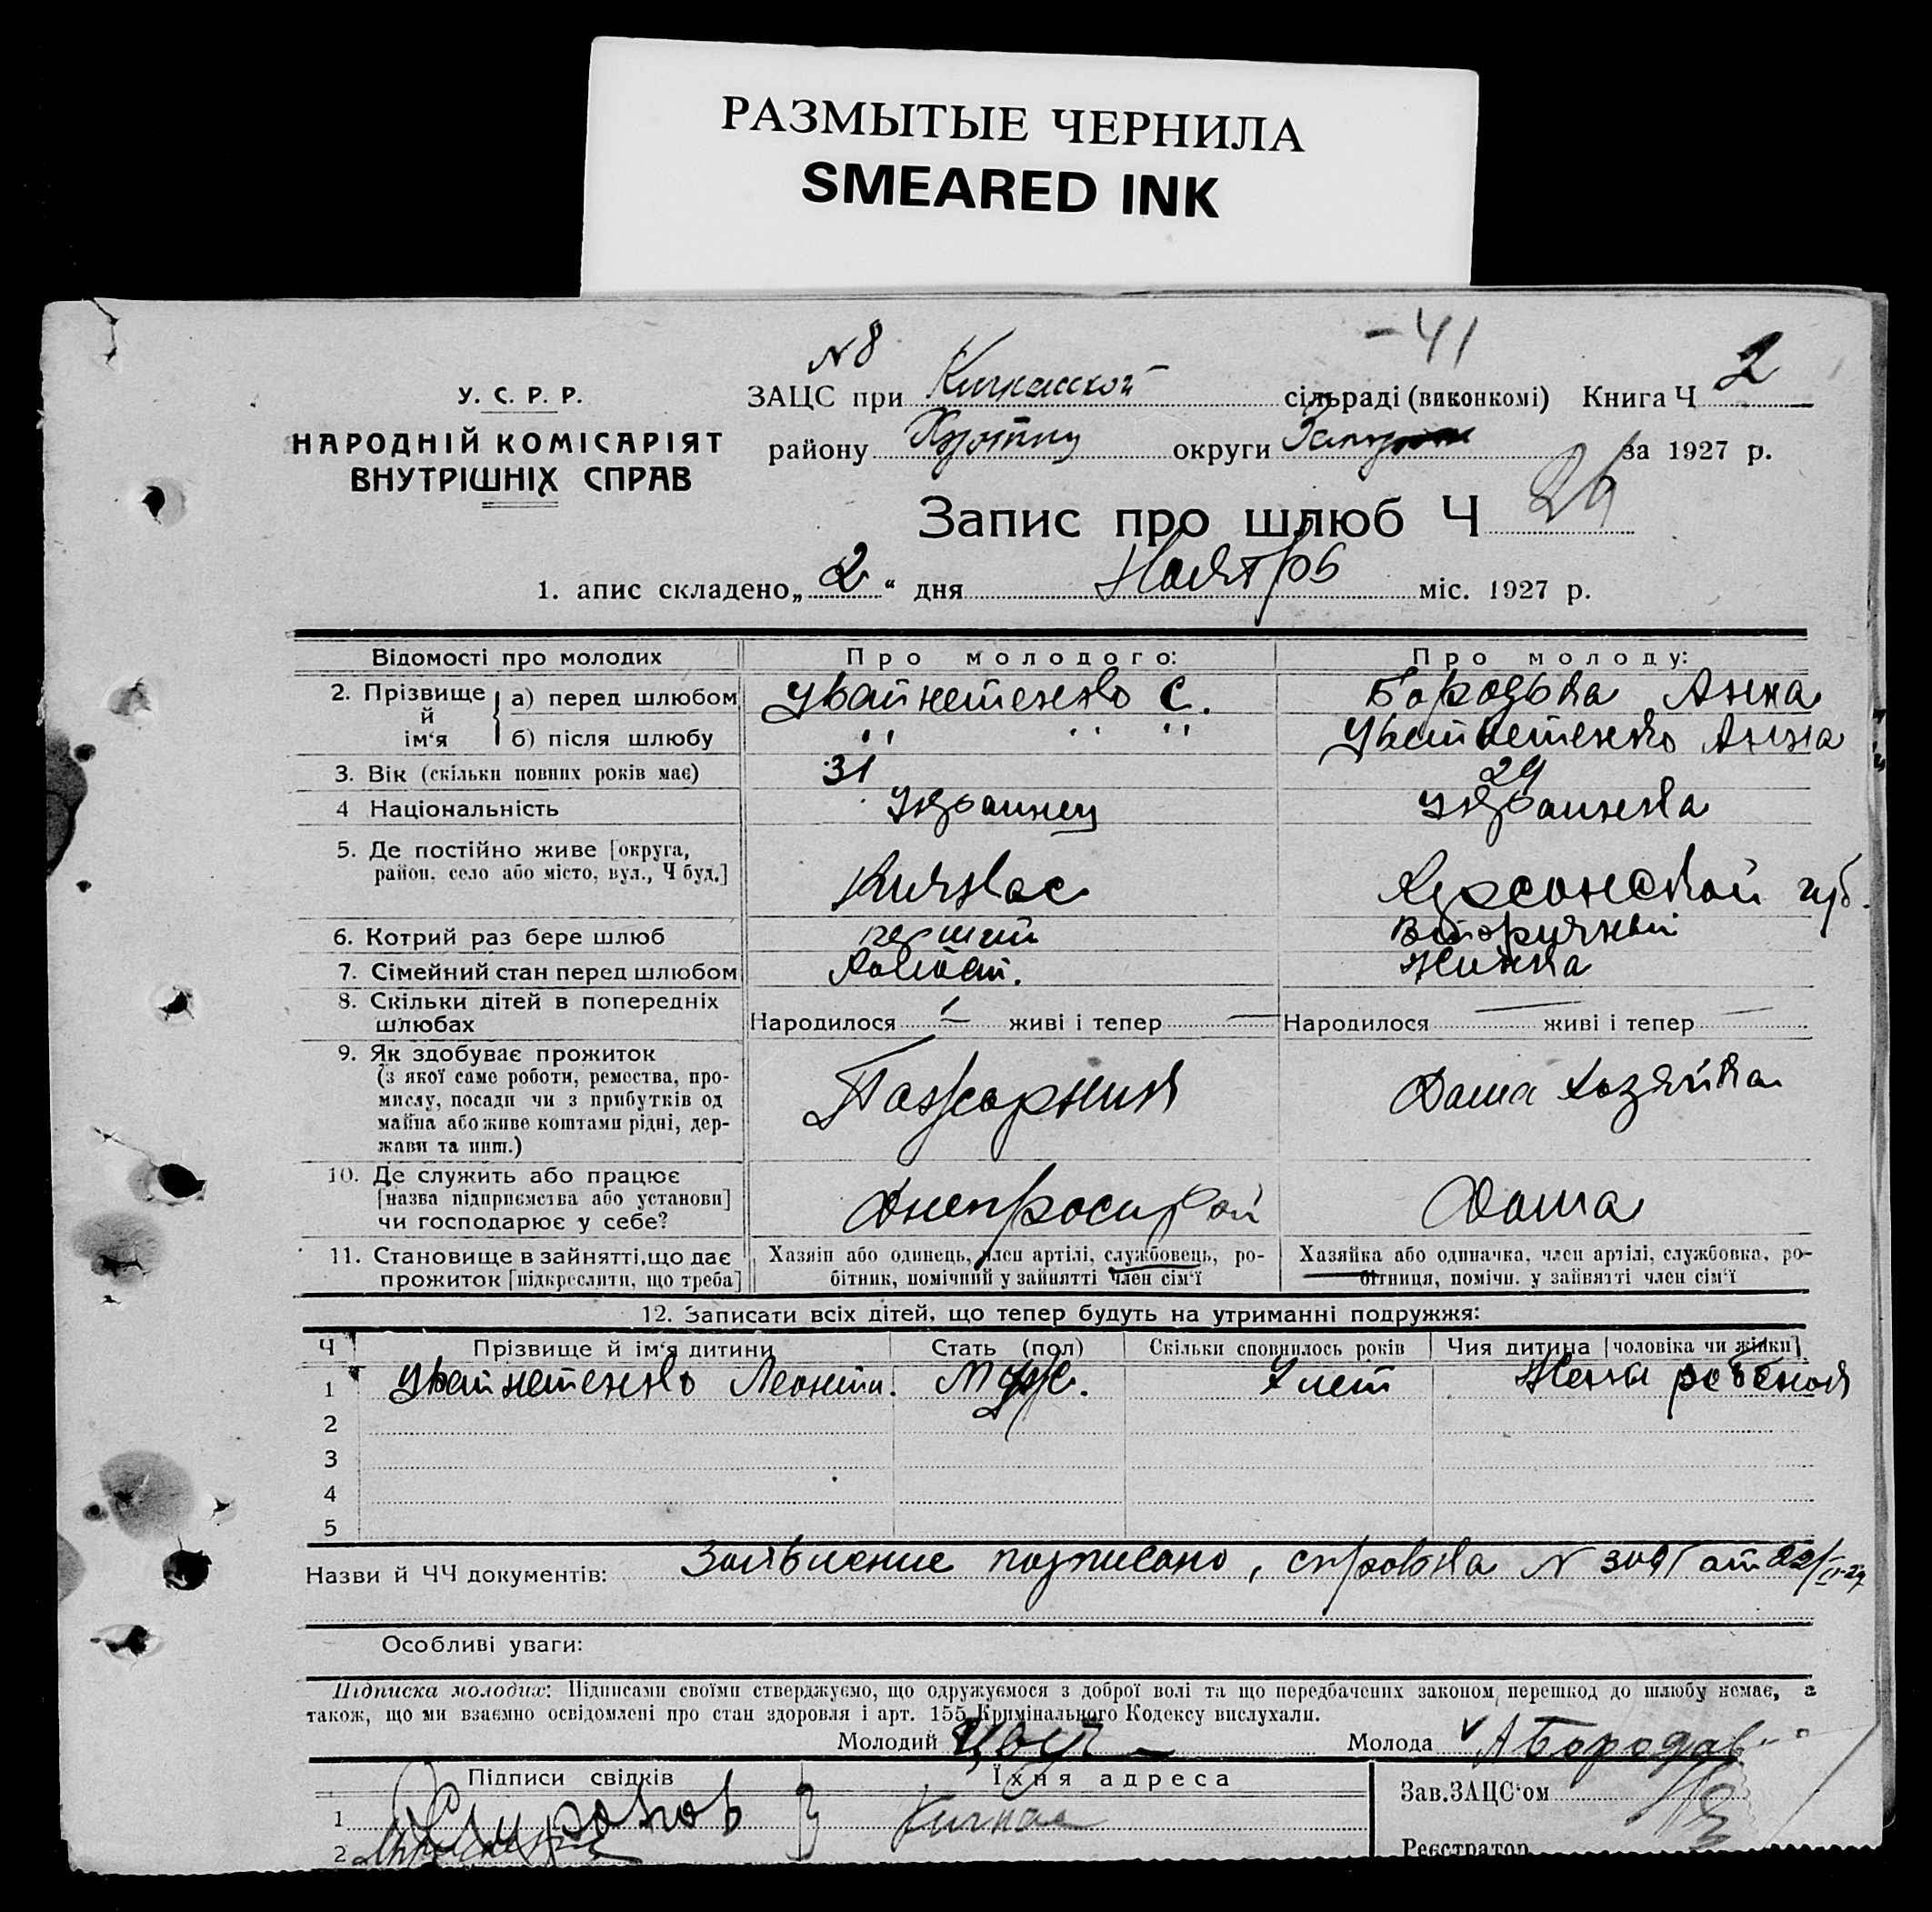 РАЗМЫТЫЕ ЧЕРНИЛА
SMEARED INK
N 8
-41
У. С. Р. Р.
НАРОДНІЙ КОМІСАРІЯТ
ВНУТРІШНІХ СПРАВ
ЗАЦС при Кичкасской сільраді (виконкомі) Книга Ч 2
району округи за 1927 р.
Запис про шлюб Ч
1. апис складено „2“ дня Ноябрь міс. 1927 р.
Відомості про молодих Про молодого: Про молоду:
2. Прізвище й ім‘я а) перед шлюбом С. Анна
б) після шлюбу " " " Анна
3. Вік (скільки повних років має) 31 29
4 Національність Украинец Украинка
5. Де постійно живе [округа,
район, село або місто, вул., Ч буд.] Кичкас Херсонской губ.
6. Котрий раз бере шлюб первый вторичный
7. Сімейний стан перед шлюбом Холост.
8. Скільки дітей в попередніх
шлюбах Народилося живі і тепер Народилося живі і тепер
9. Як здобуває прожиток
(з якої саме роботи, ремества, про-
мислу, посади чи з прибутків од
майна або живе коштами рідні, дер-
жави та инш.) Пожарник Дома хозяйка
10. Де служить або працює
[назва підприємства або установи]
чи господарює у себе? Днепрострой Дома
11. Становище в зайнятті, що дає
прожиток [підкреслити, що треба]
Хазяін або одинець, член артілі, службовець, ро-
бітник, помічний у зайнятті член сім‘ї
Хазяйка або одиначка, член артілі, службовка, ро-
бітниця, помічн. у зайнятті член сім‘ї
12. Записати всіх дітей, що тепер будуть на утриманні подружжя:
Ч Прізвище й ім‘я дитини Стать (пол) Скільки сповнилось років Чия дитина [чоловіка чи жінки]
1 Леонти. Муж. лет Жены ребенок
2
3
4
5
Назви й ЧЧ документів: Заявление подписано, справка N от 22/
Особливі уваги:
Підписка молодих: Підписами своїми стверджуємо, що одружуємося з доброї волі та що передбачених законом перешкод до шлюбу немає, а
також, що ми взаємно освідомлені про стан здоровля і арт. 155 Кримінального Кодексу вислухали.
Молодий Молода А Бородав
Підписи свідків Їхня адреса Зав. ЗАЦС‘ом
1 Кичкас
2 Реєстратор